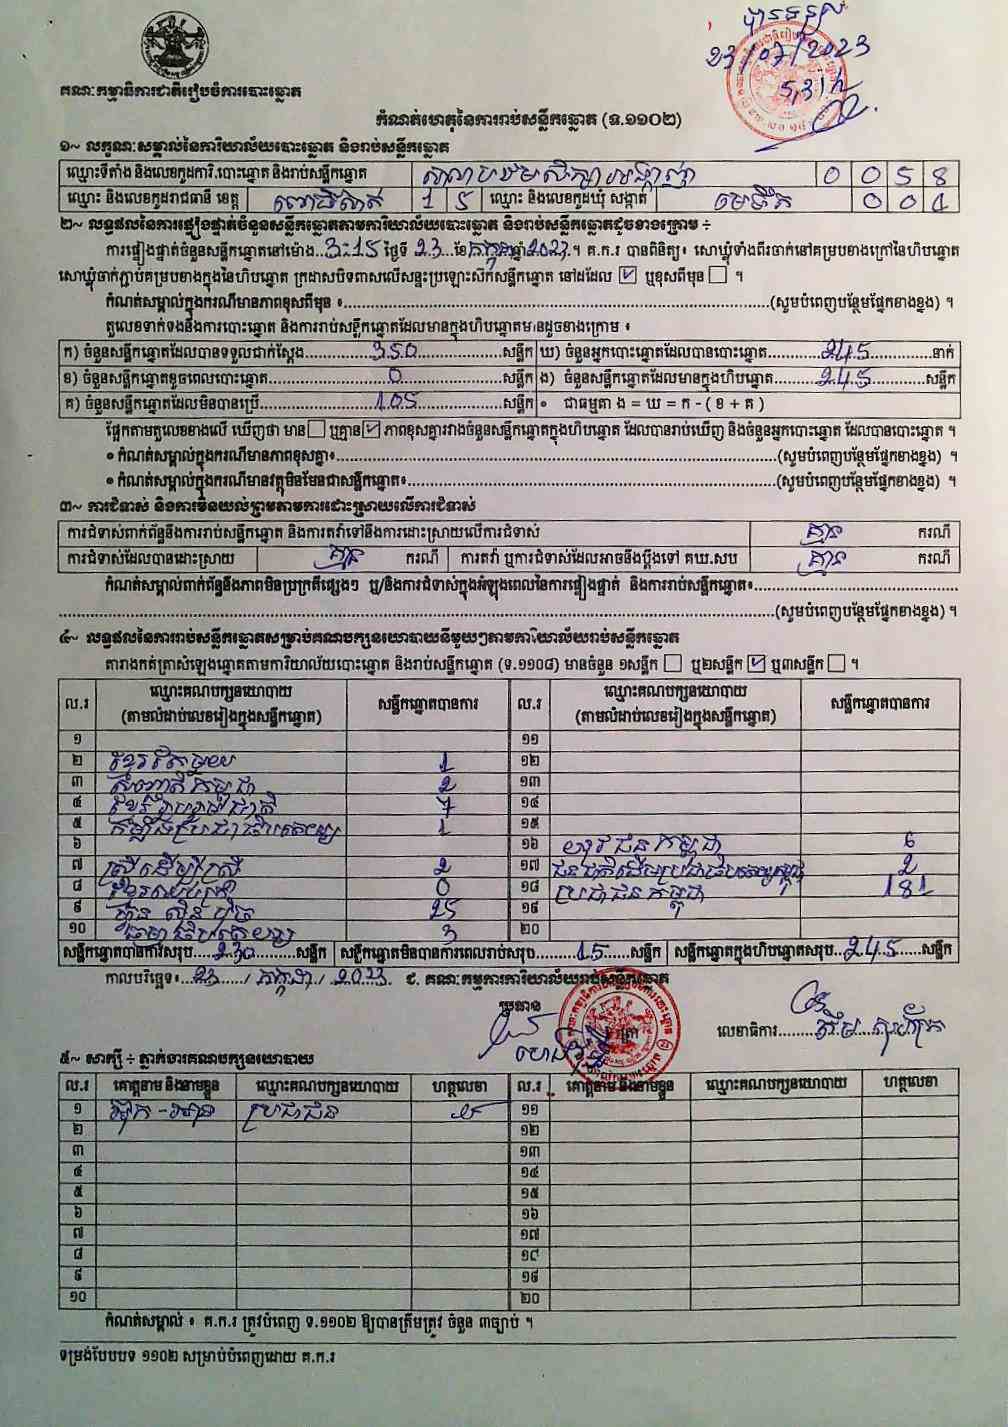 បានទទួល
23/07/2023
5,31h
គណៈកម្មាធិការជាតិរៀបចំការបោះឆ្នោត
កំណត់ហេតុនៃការរាប់សន្លឹកឆ្នោត (ទ.១១០២)
១~ លក្ខណៈសម្គាល់នៃការិយាល័យបោះឆ្នោត និងរាប់សន្លឹកឆ្នោត
ឈ្មោះទីតាំង និងលេខកូដការិ.បោះឆ្នោត និងរាប់សន្លឹកឆ្នោត សាលាបឋមសិក្សា 0 0 5 8
ឈ្មោះ និងលេខកូដរាជធានី ខេត្ត ពោធិ៍សាត់ 1 5 ឈ្មោះ និងលេខកូដឃុំ សង្កាត់ មេទឹក 0 0 1
២~ លទ្ធផលនៃការផ្ទៀងផ្ទាត់ចំនួនសន្លឹកឆ្នោតតាមការិយាល័យបោះឆ្នោត និងរាប់សន្លឹកឆ្នោតដូចខាងក្រោម ÷
ការផ្ទៀងផ្ទាត់ចំនួនសន្លឹកឆ្នោតនៅម៉ោង..3:15 ថ្ងៃទី 23...ខែ កក្កដា ឆ្នាំ 2023។ គ.ក.រ បានពិនិត្យ៖ សោឃ្លុំទាំងពីរចាក់នៅគម្របខាងក្រៅនៃហិបឆ្នោត
សោឃ្លុំចាក់ភ្ជាប់គម្របខាងក្នុងនៃហិបឆ្នោត ក្រដាសបិទពាសលើសន្ទះប្រឡោះសឹកសន្លឹកឆ្នោត នៅដដែល ☑ ឬខុសពីមុន ☐ ។
កំណត់សម្គាល់ក្នុងករណីមានភាពខុសពីមុន ៖.....(សូមបំពេញបន្ថែមផ្នែកខាងខ្នង) ។
តួលេខទាក់ទងនឹងការបោះឆ្នោត និងការរាប់សន្លឹកឆ្នោតដែលមានក្នុងហិបឆ្នោតមានដូចខាងក្រោម ៖
ក) ចំនួនសន្លឹកឆ្នោតដែលបានទទួលជាក់ស្តែង.....350.....សន្លឹក ឃ) ចំនួនអ្នកបោះឆ្នោតដែលបានបោះឆ្នោត.....245.....នាក់
ខ) ចំនួនសន្លឹកឆ្នោតខូចពេលបោះឆ្នោត.....0.....សន្លឹក ង) ចំនួនសន្លឹកឆ្នោតដែលមានក្នុងហិបឆ្នោត.....245.....សន្លឹក
គ) ចំនួនសន្លឹកឆ្នោតដែលមិនបានប្រើ.....105.....សន្លឹក ● ជាធម្មតា ង = ឃ = ក - ( ខ + គ )
ផ្អែកតាមតួលេខខាងលើ ឃើញថា មាន ☐ ឬគ្មាន ☑ ភាពខុសគ្នារវាងចំនួនសន្លឹកឆ្នោតក្នុងហិបឆ្នោត ដែលបានរាប់ឃើញ និងចំនួនអ្នកបោះឆ្នោត ដែលបានបោះឆ្នោត ។
● កំណត់សម្គាល់ក្នុងករណីមានភាពខុសគ្នា៖.....(សូមបំពេញបន្ថែមផ្នែកខាងខ្នង) ។
● កំណត់សម្គាល់ក្នុងករណីមានវត្ថុមិនមែនជាសន្លឹកឆ្នោត៖.....(សូមបំពេញបន្ថែមផ្នែកខាងខ្នង) ។
៣~ ការជំទាស់ និងការមិនយល់ព្រមតាមការដោះស្រាយលើការជំទាស់
ការជំទាស់ពាក់ព័ន្ធនឹងការរាប់សន្លឹកឆ្នោត និងការតវ៉ាទៅនឹងការដោះស្រាយលើការជំទាស់ គ្មាន ករណី
ការជំទាស់ដែលបានដោះស្រាយ គ្មាន ករណី ការតវ៉ា ឬការជំទាស់ដែលអាចនឹងប្តឹងទៅ គឃ.សប គ្មាន ករណី
កំណត់សម្គាល់ពាក់ព័ន្ធនឹងភាពមិនប្រក្រតីផ្សេងៗ ឬ/និងការជំទាស់ក្នុងអំឡុងពេលនៃការផ្ទៀងផ្ទាត់ និងការរាប់សន្លឹកឆ្នោត៖.....
.....(សូមបំពេញបន្ថែមផ្នែកខាងខ្នង) ។
៤~ លទ្ធផលនៃការរាប់សន្លឹកឆ្នោតសម្រាប់គណបក្សនយោបាយនីមួយៗតាមការិយាល័យរាប់សន្លឹកឆ្នោត
តារាងកត់ត្រាសំឡេងឆ្នោតតាមការិយាល័យបោះឆ្នោត និងរាប់សន្លឹកឆ្នោត (ទ.១១០៨) មានចំនួន ១សន្លឹក ☐ ឬ២សន្លឹក ☑ ឬ៣សន្លឹក ☐ ។
ល.រ ឈ្មោះគណបក្សនយោបាយ (តាមលំដាប់លេខរៀងក្នុងសន្លឹកឆ្នោត) សន្លឹកឆ្នោតបានការ ល.រ ឈ្មោះគណបក្សនយោបាយ (តាមលំដាប់លេខរៀងក្នុងសន្លឹកឆ្នោត) សន្លឹកឆ្នោតបានការ
១ ១១
២ ខ្មែរតែមួយ 1 ១២
៣ សញ្ជាតិកម្ពុជា 2 ១៣
៤ ខ្មែររួបរួមជាតិ 7 ១៤
៥ កម្លាំងប្រជាធិបតេយ្យ 1 ១៥
៦ ១៦ យុវជនកម្ពុជា 6
៧ ស្រីដើម្បីស្រី 2 ១៧ ជនជាតិដើមប្រជាធិបតេយ្យកម្ពុជា 2
៨ 0 ១៨ ប្រជាជនកម្ពុជា 181
៩ ហ៊្វុនស៊ិនប៉ិច 25 ១៩
១០ ធម្មាធិបតេយ្យ 3 ២០
សន្លឹកឆ្នោតបានការសរុប.....230.....សន្លឹក សន្លឹកឆ្នោតមិនបានការពេលរាប់សរុប.....15.....សន្លឹក សន្លឹកឆ្នោតក្នុងហិបឆ្នោតសរុប..245.....សន្លឹក
កាលបរិច្ឆេទ៖...23...../ កក្កដា / 2023. ជ. គណៈកម្មការការិយាល័យរាប់សន្លឹកឆ្នោត
ប្រធាន
លេខាធិការ
៥~ សាក្សី ÷ ភ្នាក់ងារគណបក្សនយោបាយ
ល.រ គោត្តនាម និងនាមខ្លួន ឈ្មោះគណបក្សនយោបាយ ហត្ថលេខា ល.រ គោត្តនាម និងនាមខ្លួន ឈ្មោះគណបក្សនយោបាយ ហត្ថលេខា
១ ប្រជាជន ១១
២ ១២
៣ ១៣
៤ ១៤
៥ ១៥
៦ ១៦
៧ ១៧
៨ ១៨
៩ ១៩
១០ ២០
កំណត់សម្គាល់ ៖ គ.ក.រ ត្រូវបំពេញ ទ.១១០២ ឱ្យបានត្រឹមត្រូវ ចំនួន ៣ច្បាប់ ។
ទម្រង់បែបបទ ១១០២ សម្រាប់បំពេញដោយ គ.ក.រ